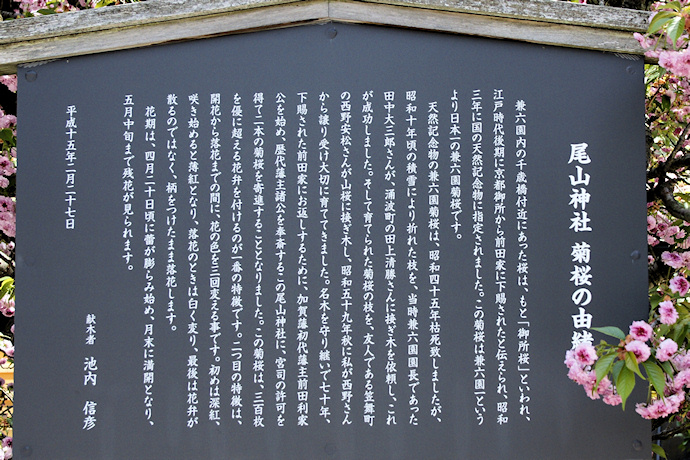 尾山神社 菊桜の由緒
兼六園内の千歳橋付近にあった桜は、もと「御所桜」といわれ、
江戸時代後期に京都御所から前田家に下賜されたと伝えられ、昭和
三年に国の天然記念物に指定されました。この菊桜は兼六園一という
より日本一の兼六園菊桜です。
天然記念物の兼六園菊桜は、昭和四十五年枯死致しましたが、
昭和十年頃の積雪により折れた枝を、当時兼六園園長であった
田中大三郎さんが、涌波町の田上清勝さんに接ぎ木を依頼し、これ
が成功しました。そして育てられた菊桜の枝を、友人である笠舞町
の西野安松さんが山桜に接ぎ木し、昭和五十九年秋に私が西野さん
から譲り受け大切に育ててきました。名木を守り継いで七十年、
下賜された前田家にお返しするために、加賀藩初代藩主前田利家
公を始め、歴代藩主諸公を奉斎するこの尾山神社に、宮司の許可を
得て二本の菊桜を寄進することとなりました。この菊桜は、三百枚
を優に超える花弁を付けるのが一番の特徴です。二つ目の特徴は、
開花から落花までの間に、花の色を三回変える事です。初めは深紅、
咲き始めると薄紅となり、落花のときは白く変り、最後は花弁が
散るのではなく、柄をつけたまま落花します。
花期は、四月二十日頃に蕾が膨らみ始め、月末に満開となり、
五月中旬まで残花が見られます。
平成十五年二月二十七日
献木者 池内 信彦